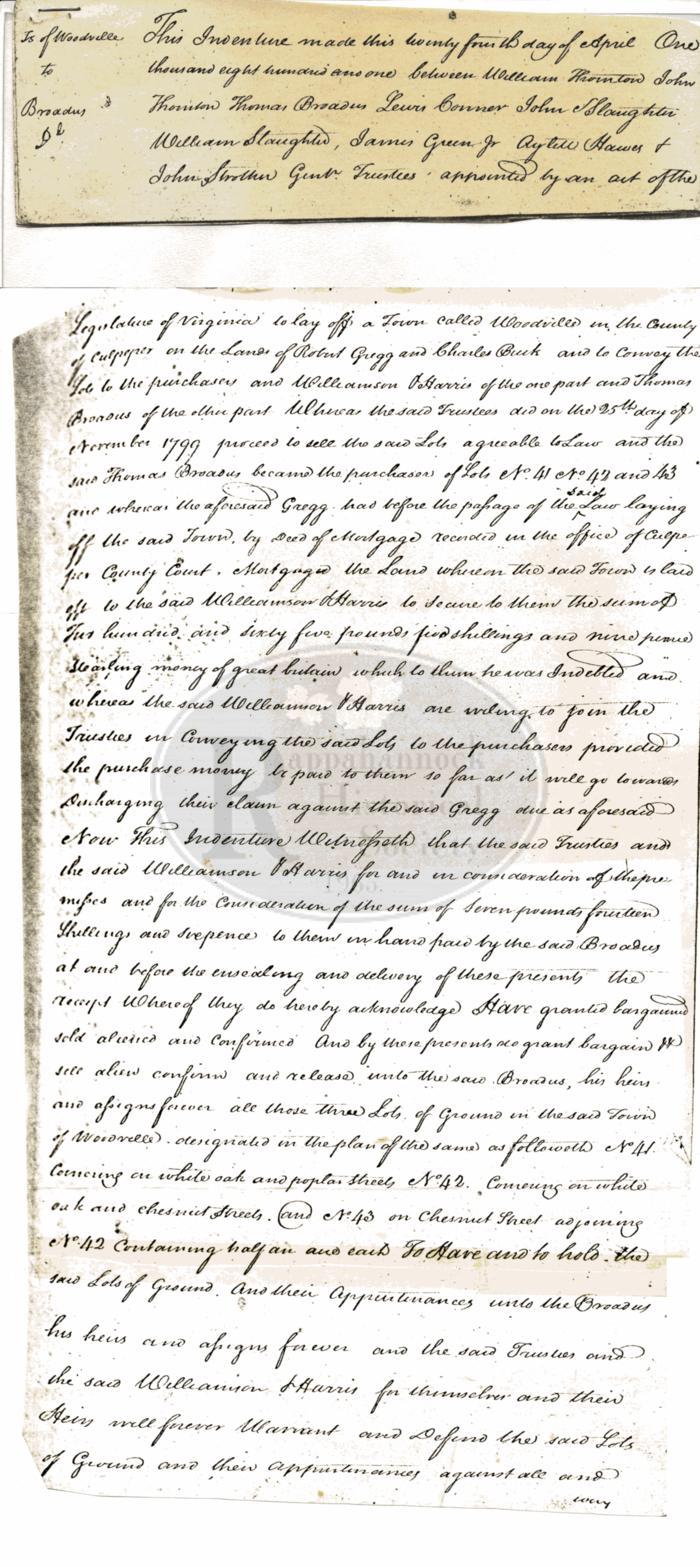 Ts of Woodville
to
Broadus
Dd
This Indenture made this twenty fourth day of April One
thousand eight hundred and one between William Thornton John
Thornton Thomas Broadus Lewis Conner John Slaughter
William Slaughter, James Green Jr Aylett Hawes &
John Strother Gent. Trustees appointed by an act of the
Legislature of Virginia to lay off a Town called Woodville in the County
of Culpeper on the Lands of Robert Gregg and Charles Buck and to Convey the
Lots to the purchasers and Williamson & Harris of the one part and Thomas
Broadus of the other part Whereas the said Trustees did on the 25th day of
November 1799 proceed to sell the said Lots agreable to Law and the
said Thomas Broadus became the purchaser of Lots No. 41 No. 42 and 43
and whereas the aforesaid Gregg had before the passage of the said Law laying
off the said Town, by Deed of Mortgage recorded in the office of Culpe-
per County Court. Mortgaged the Land whereon the said Town is laid
off to the said Williamson & Harris to secure to them the sum of
hundred and sixty five pounds shillings and nine pence
Starling money of great britain which to them he was Indebted and
whereas the said Williamson & Harris are willing to join the
Trustees in Conveying the said Lots to the purchasers provided
the purchase money be paid to them so far as it will go towards
Discharging their claim against the said Gregg due as aforesaid
Now This Indenture Witnesseth that the said Trustees and
the said Williamson & Harris for and in consideration of the pre
misses and for the Consideration of the sum of Seven pounds fourteen
Shillings and sixpence to them in hand paid by the said Broadus
at and before the ensealing and delivery of these presents the
receipt Whereof they do hereby acknowledge Have granted bargained
sold aliened and Confirmed And by these presents do grant bargain &
sell alien confirm and release unto the said Broadus, his heirs
and assigns forever all those three Lots of Ground in the said Town
of Woodville designated in the plan of the same as followeth No. 41
Cornering on white oak and poplar Streets No. 42. Cornering on white
oak and chesnut Streets. and No. 43 on Chesnut Street adjoining
No. 42 Containing half an each To Have and to hold the
said Lots of Ground. And their Appurtinances unto the Broadus
his heirs and assigns forever and the said Trustees and
the said Williamson & Harris for themselves and their
Heirs will forever Warrant and Defend the said Lots
of Ground and their appurtinances against all and
every
Rappahannock
Historical
Society